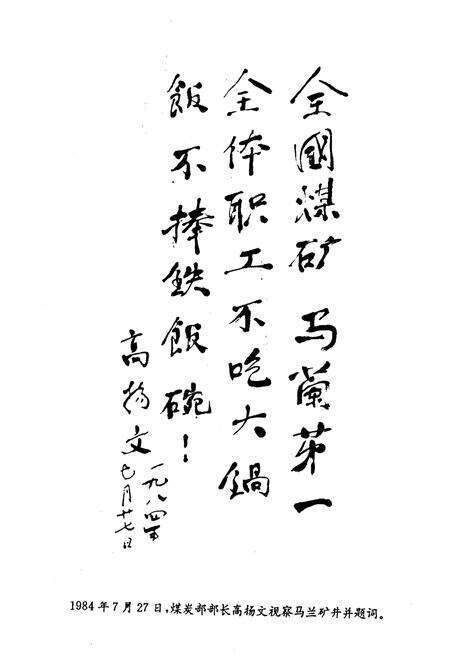 全國煤矿马蘭苐一
全体职工不吃大鍋
飯不捧鉄飯碗！
高扬文
一九八四年
七月廿七日
1984年7月27日，煤炭部部长高扬文视察马兰矿井并题词。